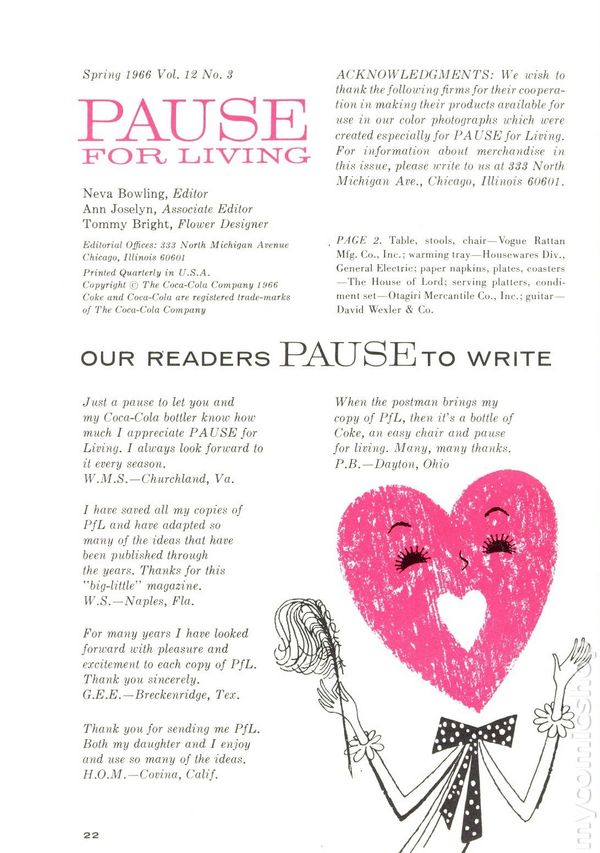 Spring 1966 Vol. 12 No. 3
PAUSE
FOR LIVING
Neva Bowling, Editor
Ann Joselyn, Associate Editor
Tommy Bright, Flower Designer
Editorial Offices: 333 North Michigan Avenue
Chicago, Illinois 60601
Printed Quarterly in U.S.A.
Copyright © The Coca-Cola Company 1966
Coke and Coca-Cola are registered trade-marks
of The Coca-Cola Company
ACKNOWLEDGMENTS: We wish to
thank the following firms for their coopera-
tion in making their products available for
use in our color photographs which were
created especially for PAUSE for Living.
For information about merchandise in
this issue, please write to us at 333 North
Michigan Ave., Chicago, Illinois 60601.
PAGE 2. Table, stools, chair—Vogue Rattan
Mfg. Co., Inc.; warming tray—Housewares Div.,
General Electric; paper napkins, plates, coasters
—The House of Lord; serving platters, condi-
ment set—Otagiri Mercantile Co., Inc.; guitar—
David Wexler & Co.
OUR READERS PAUSE TO WRITE
Just a pause to let you and
my Coca-Cola bottler know how
much I appreciate PAUSE for
Living. I always look forward to
it every season.
W.M.S.—Churchland, Va.
I have saved all my copies of
PfL and have adapted so
many of the ideas that have
been published through
the years. Thanks for this
"big-little" magazine.
W.S.—Naples, Fla.
For many years I have looked
forward with pleasure and
excitement to each copy of PfL.
Thank you sincerely.
G.E.E.—Breckenridge, Tex.
Thank you for sending me PfL.
Both my daughter and I enjoy
and use so many of the ideas.
H.O.M.—Covina, Calif.
When the postman brings my
copy of PfL, then it's a bottle of
Coke, an easy chair and pause
for living. Many, many thanks.
P.B.—Dayton, Ohio
22
mycomicshop